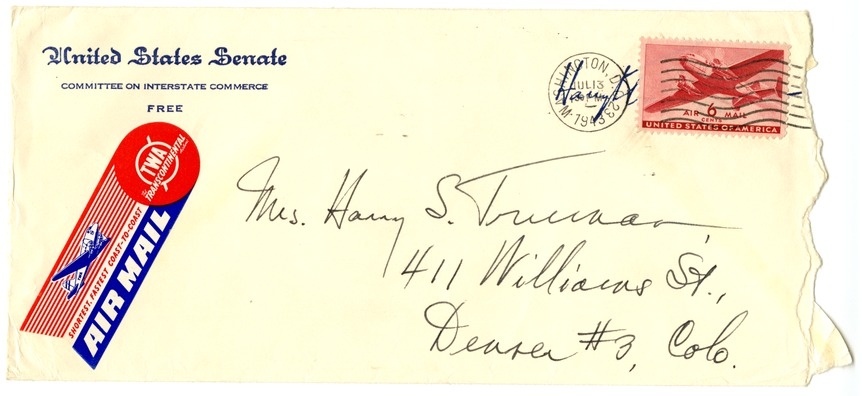 United States Senate
COMMITTEE ON INTERSTATE COMMERCE
FREE
TWA
TRANSCONTINENTAL
SHORTEST, FASTEST COAST-TO-COAST
AIR MAIL
WASHINGTON, D.C.
JUL 13
1943
Harry
AIR 6 MAIL
CENTS
UNITED STATES OF AMERICA
Mrs. Harry S. Truman,
411 Williams St.,
Denver #3, Colo.